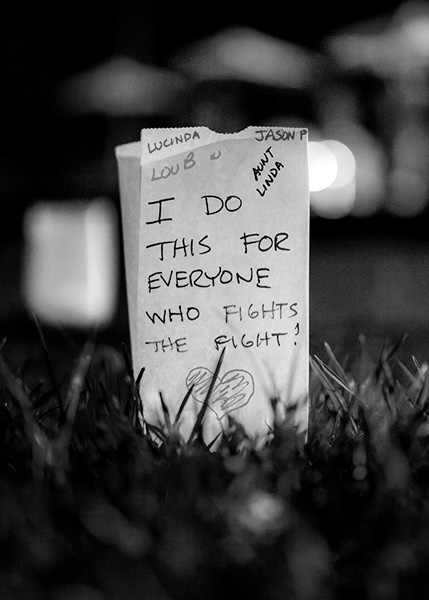 LUCINDA JASON P
LOU B
AUNT
LINDA
I DO
THIS FOR
EVERYONE
WHO FIGHTS
THE FIGHT!